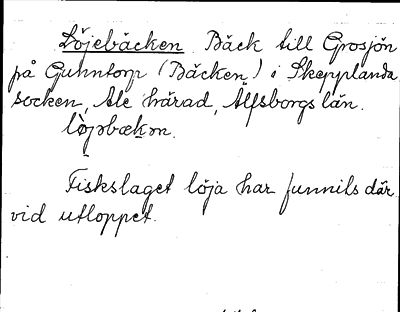 Löjebäcken Bäck till Grosjön
på Guhntorp (Bäcken) i Skepplanda
socken, Ale härad, Älfsborgs län.
Fiskslaget löja har funnits där
vid utloppet.